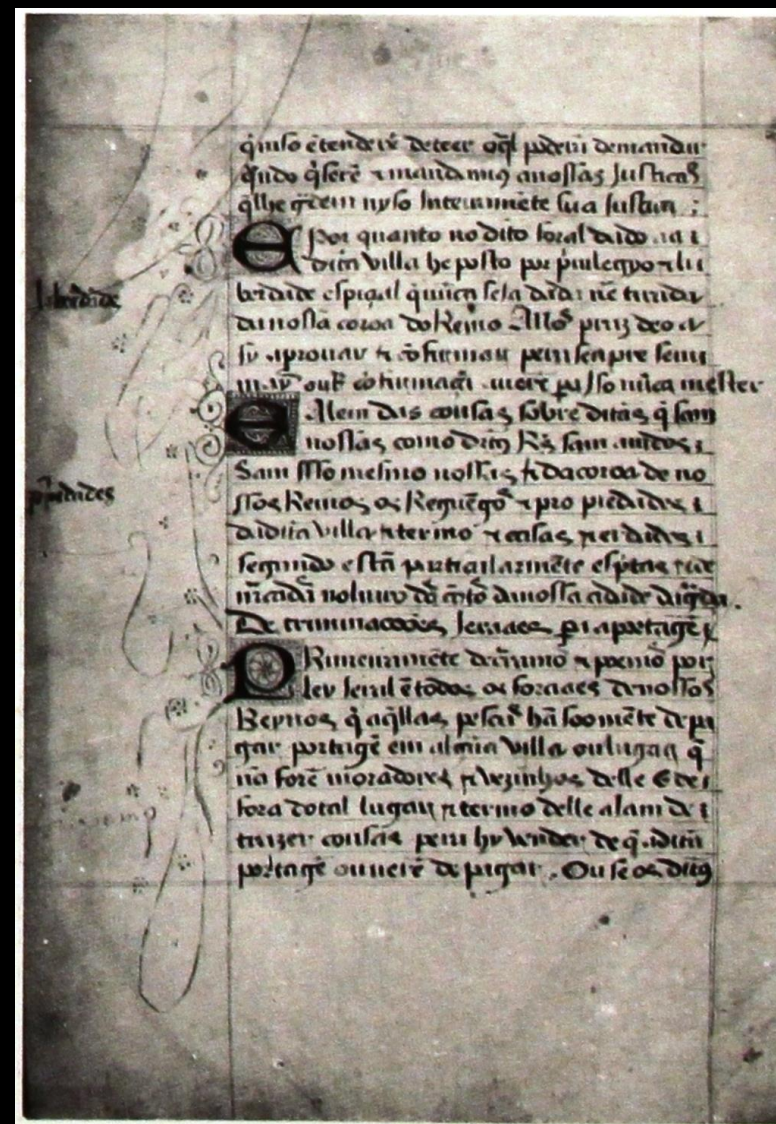 q̃ niso ẽtenderẽ de teer o q̃l poderã demandar
q̃ndo q̃serẽ & mandamos a nossas Justiças
q̃ lhe g̃dem nyso Inteiramẽte sua Justiça ;
E Por quanto no dito foral dado aa
dita villa he posto por p̃uilegyo & li
berdade espiçial q̃ nũca seja dada nẽ tirada
da nossa coroa do Reino
liberdade
aprouar & cõfirmar pera senpre sem
mays outra cõfirmaçã pera Isso nũca mester
E Alem das cousas sobreditas q̃ sam
nossas como ditas
Sam Isso mesmo nossas & da coroa de no
ssos Reinos os Reguẽgos & propiedades
propiedades
da dita villa & termo & casas & erdades
segundo estã particularmẽte
no liuro da nossa cidade da g̃da.
Determinações Jeraaes pera a portagẽ
PRimeiramẽte decraramos & poemos por
ley Jeral ẽ todos os foraaes de nossos
Reynos q̃ aq̃llas pesoas hã soomẽte de pa
gar portagẽ em algũa villa ou lugar q̃
nã forẽ moradores & vezinhos delle E de
fora do tal lugar & termo delle ajam de
trazer cousas pera hy vender de q̃ a dita
portagẽ ouuerẽ de pagar. Ou se os ditos